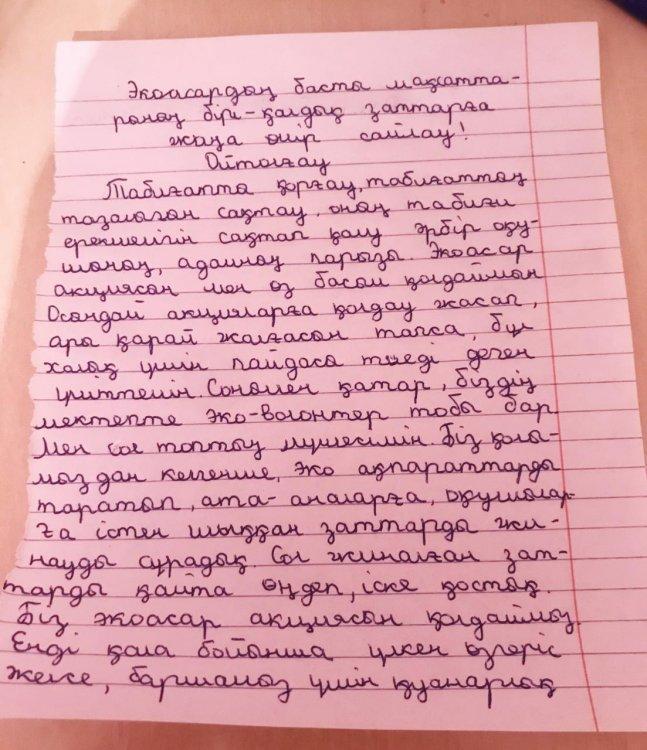 Экоасардың басты мақсатта-
рының бірі-қалдық заттарға
жаңа өмір сыйлау!
Ойтолғау
Табиғатты қорғау, табиғаттың
тазалығын сақтау, оның табиғи
ерекшелігін сақтап қалу әрбір оқу-
шының, адамның парызы. Экоасар
акциясын мен өз басым қолдаймын
Осындай акцияларға қолдау жасап,
ары қарай жалғасын тапса, бұл
халық үшін пайдасы тиеді деген
үміттемін. Сонымен қатар, біздің
мектепте эко-волонтер тобы бар
Мен сол топтың мүшесімін. Біз қолы-
мыздан келгенше, эко ақпараттарды
таратып, ата-аналарға, оқушылар-
ға істен шыққан заттарды жи-
науды сұрадық. Сол жиналған зат-
тарды қайта өңдеп, іске қостық.
Біз экоасар акциясын қолдаймыз.
Енді қала бойынша үлкен өзгеріс
жетсе, баршамыз үшін қуанарлық